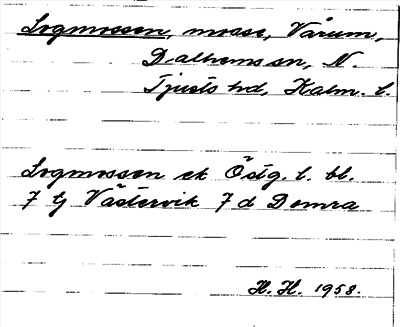 Logmossen, mosse, Vårum,
Dalhems sn, N.
Tjusts hd, Kalm. l.
Logmossen ek Östg. l. bl.
7 G Västervik 7 d Domra
H. H. 1958.